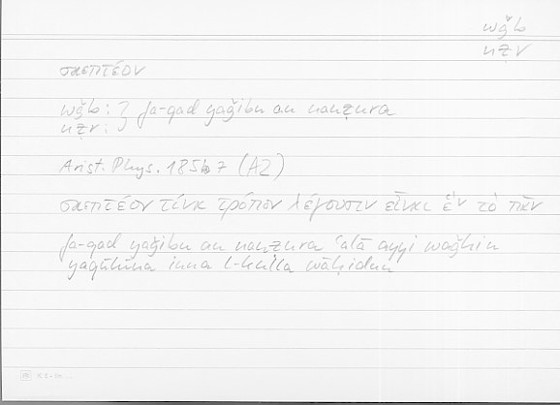 wǧb
nẓr
σκεπτέον
wǧb : } fa-qad yaǧibu an nanẓura
nẓr : }
Arist. Phys. 185b7 (A2)
σκεπτέον τίνα τρόπον λέγουσιν εἶναι ἓν τὸ πᾶν
fa-qad yaǧibu an nanẓura ʿalā ayyi waǧhin
yaqūlūna inna l-kulla wāḥidun